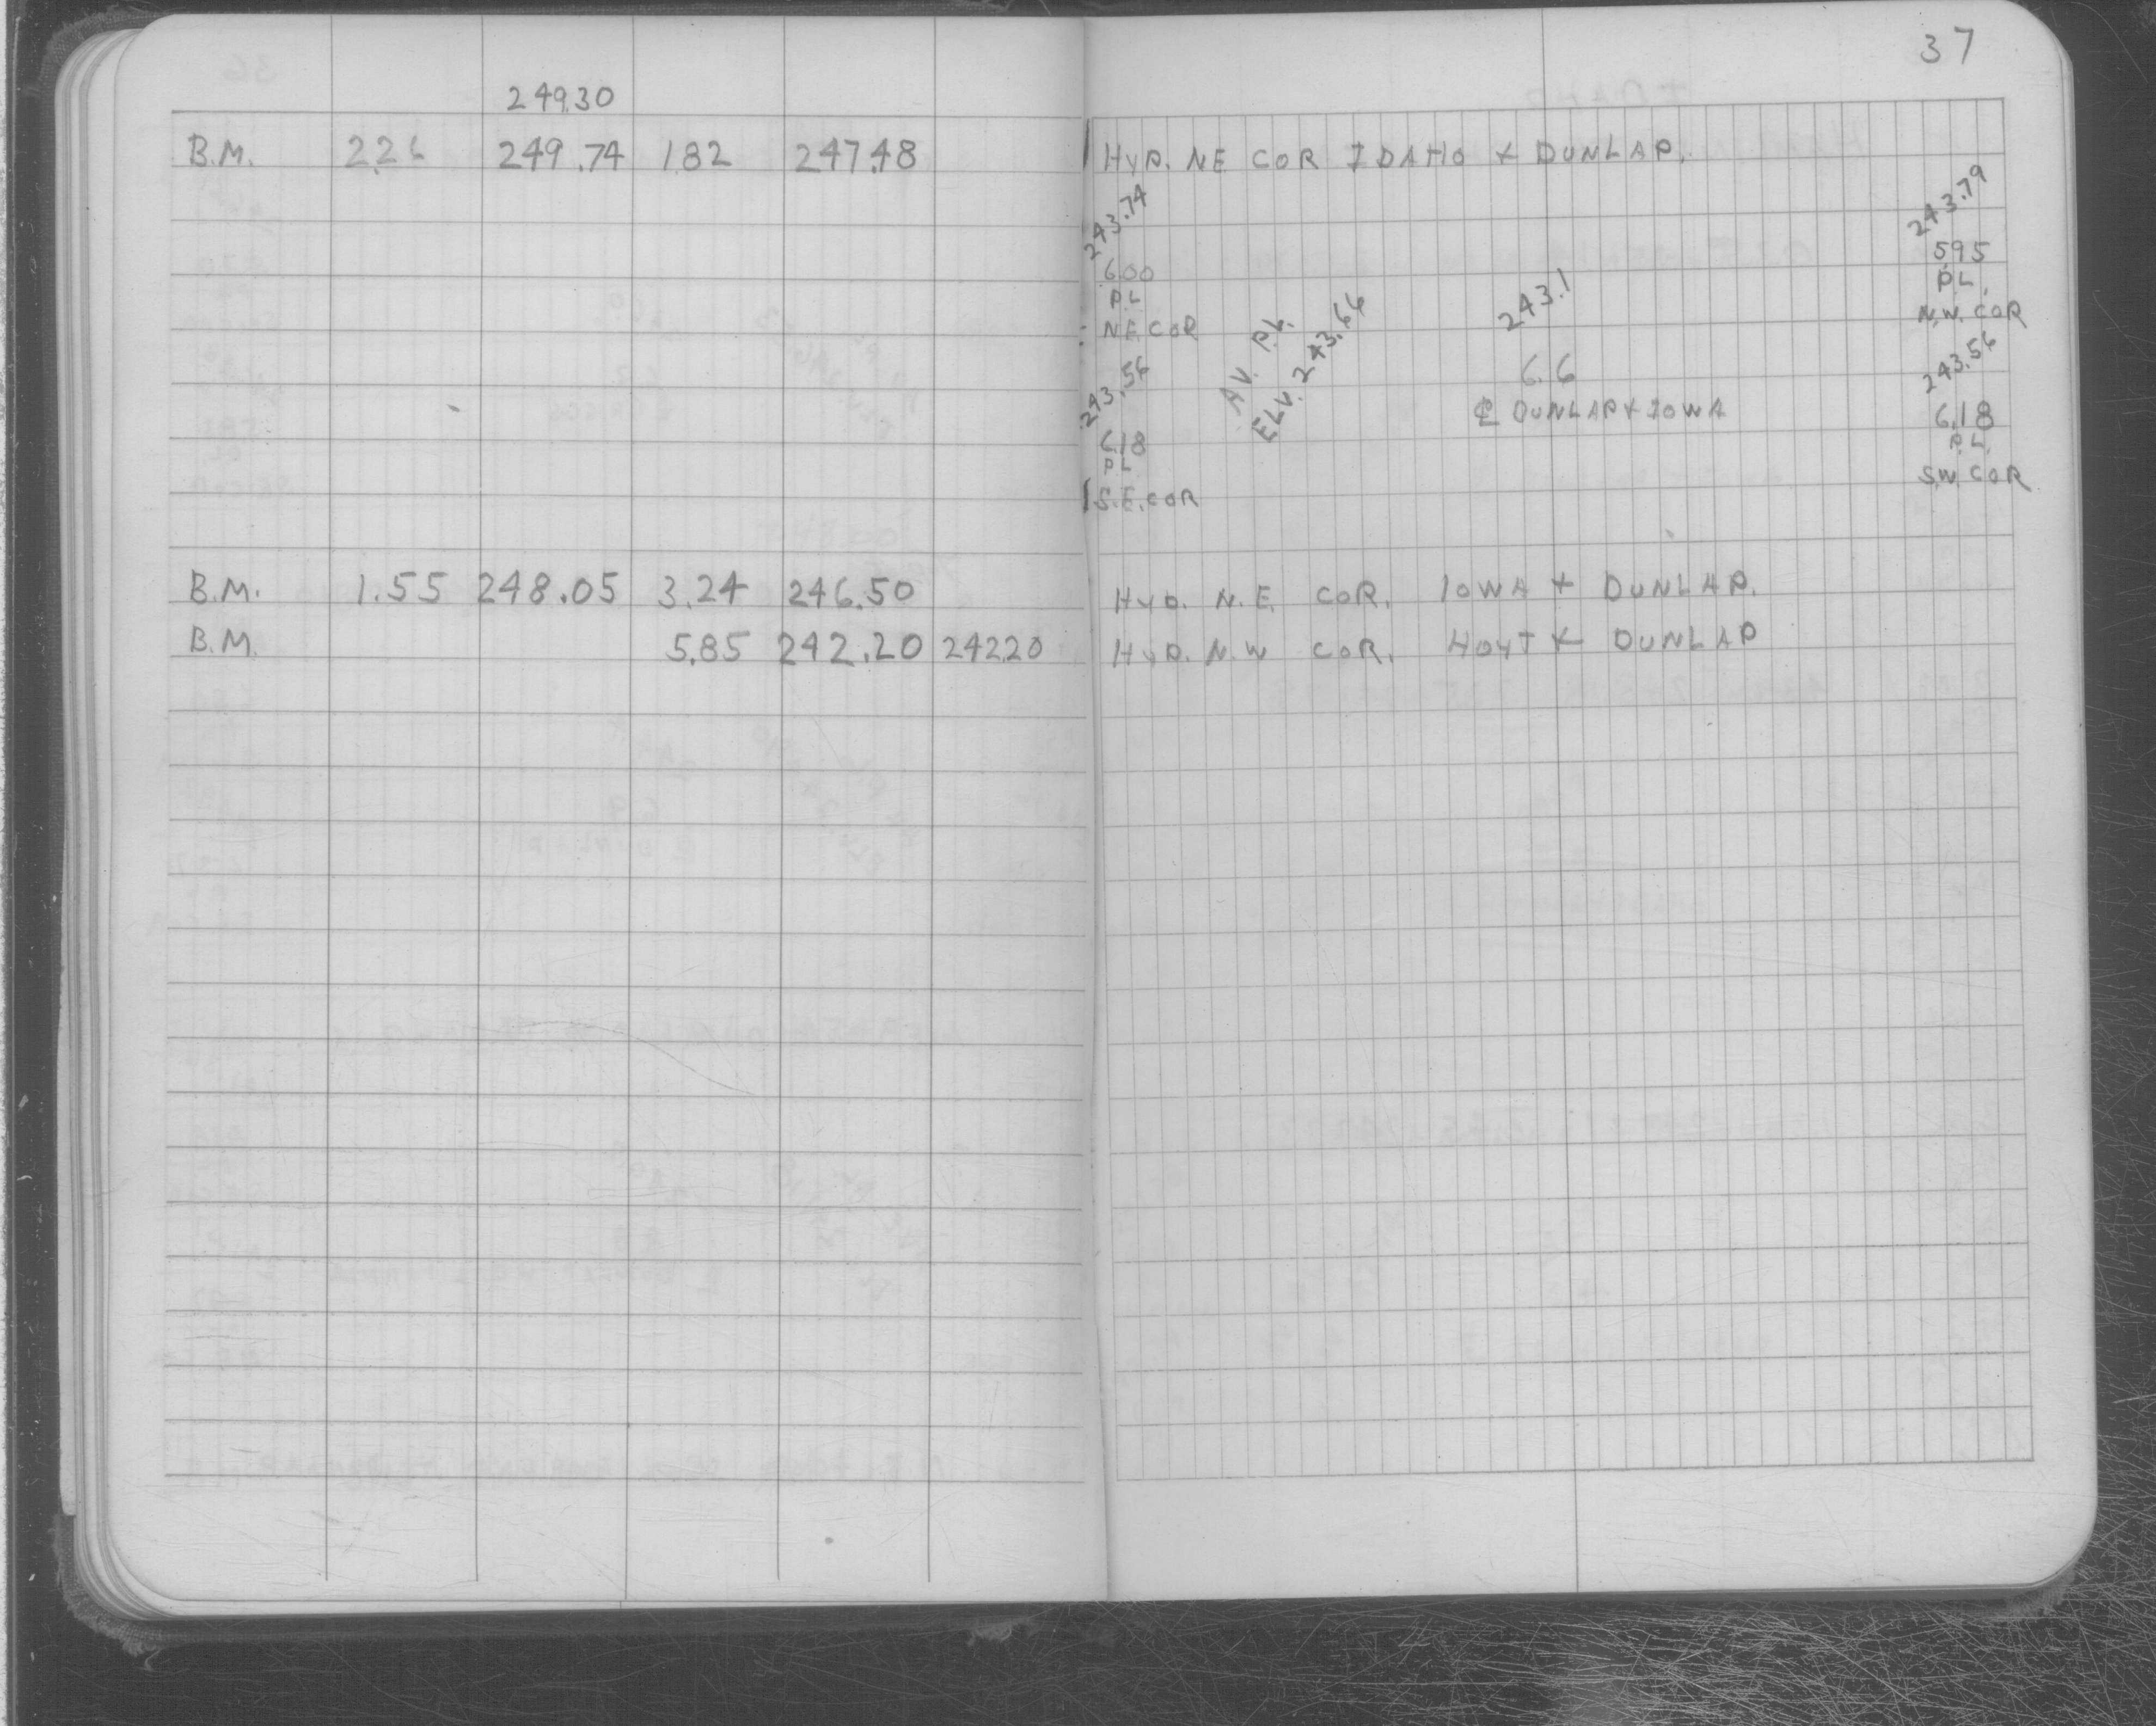 37
249.30
B.M. 2.26 249.74 1.82 247.48 HYD. NE COR IDAHO & DUNLAP.
243.74
6.00
P.L
N.E. COR
243.56
6.18
P.L
S.E. COR
AV. P.L.
ELV. 243.66
243.1
6.6
℄ DUNLAP & IOWA
243.79
5.95
P.L.
N.W. COR
243.56
6.18
P.L.
S.W. COR
B.M. 1.55 248.05 3.24 246.50 HYD. N.E. COR. IOWA & DUNLAP.
B.M. 5.85 242.20 242.20 HYD. N.W COR. HOYT & DUNLAP